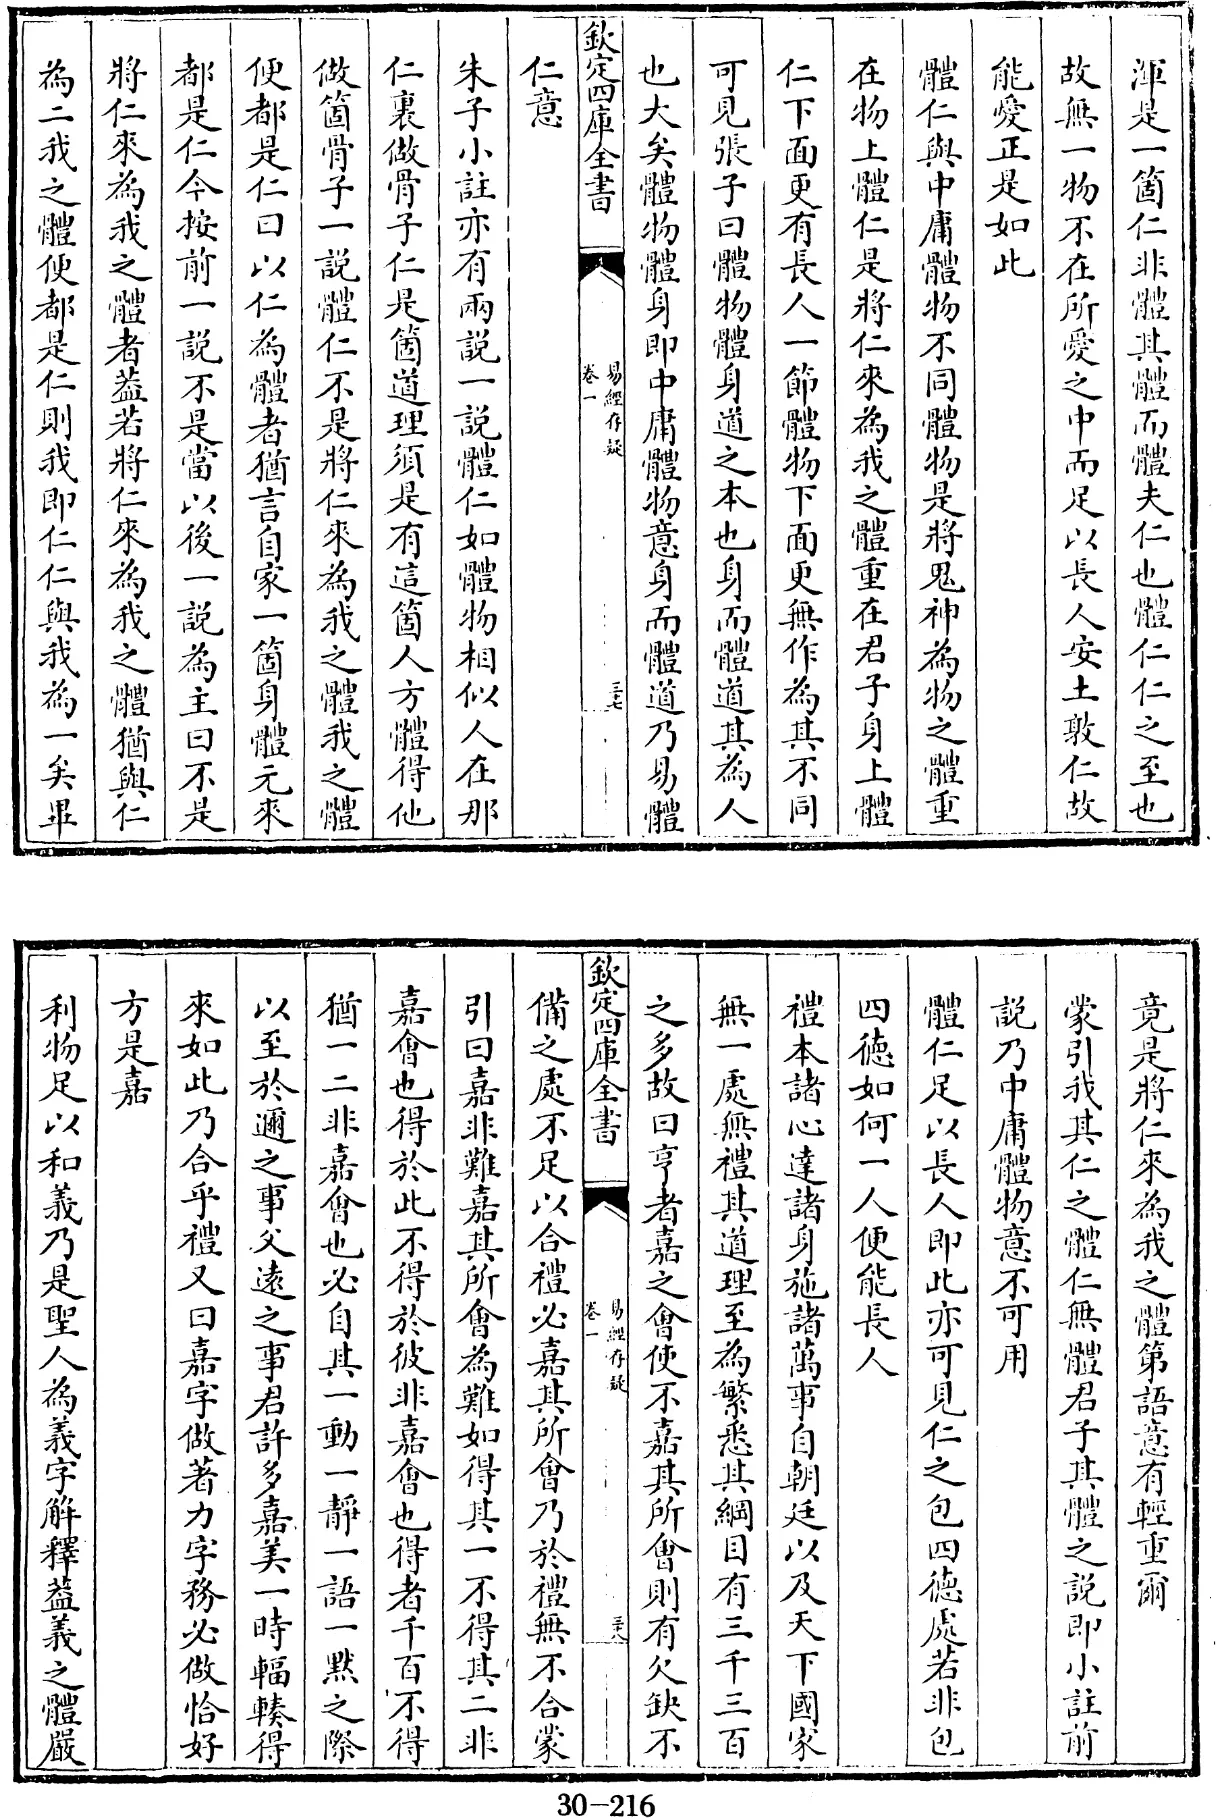 渾是一箇仁非體其體而體夫仁也體仁仁之至也
故無一物不在所愛之中而足以長人安土敦仁故
能愛正是如此
體仁與中庸體物不同體物是將鬼神為物之體重
在物上體仁是將仁來為我之體重在君子身上體
仁下面更有長人一節體物下面更無作為其不同
可見張子曰體物體身道之本也身而體道其為人
也大矣體物體身即中庸體物意身而體道乃易體
欽定四庫全書
易經存疑
卷一
三七
仁意
朱子小註亦有兩説一説體仁如體物相似人在那
仁裏做骨子仁是箇道理須是有這箇人方體得他
做箇骨子一説體仁不是將仁來為我之體我之體
便都是仁曰以仁為體者猶言自家一箇身體元來
都是仁今按前一説不是當以後一説為主曰不是
將仁來為我之體者葢若將仁來為我之體猶與仁
為二我之體便都是仁則我即仁仁與我為一矣畢
竟是將仁來為我之體第語意有輕重爾
蒙引我其仁之體仁無體君子其體之説即小註前
説乃中庸體物意不可用
體仁足以長人即此亦可見仁之包四德處若非包
四德如何一人便能長人
禮本諸心達諸身施諸萬事自朝廷以及天下國家
無一處無禮其道理至為繁悉其綱目有三千三百
之多故曰亨者嘉之會使不嘉其所會則有欠缺不
欽定四庫全書
易經存疑
卷一
三八
備之處不足以合禮必嘉其所會乃於禮無不合蒙
引曰嘉非難嘉其所會為難如得其一不得其二非
嘉會也得於此不得於彼非嘉會也得者千百不得
猶一二非嘉會也必自其一動一靜一語一黙之際
以至於邇之事父遠之事君許多嘉美一時輻輳得
來如此乃合乎禮又曰嘉字做著力字務必做恰好
方是嘉
利物足以和義乃是聖人為義字解釋葢義之體嚴
30-216